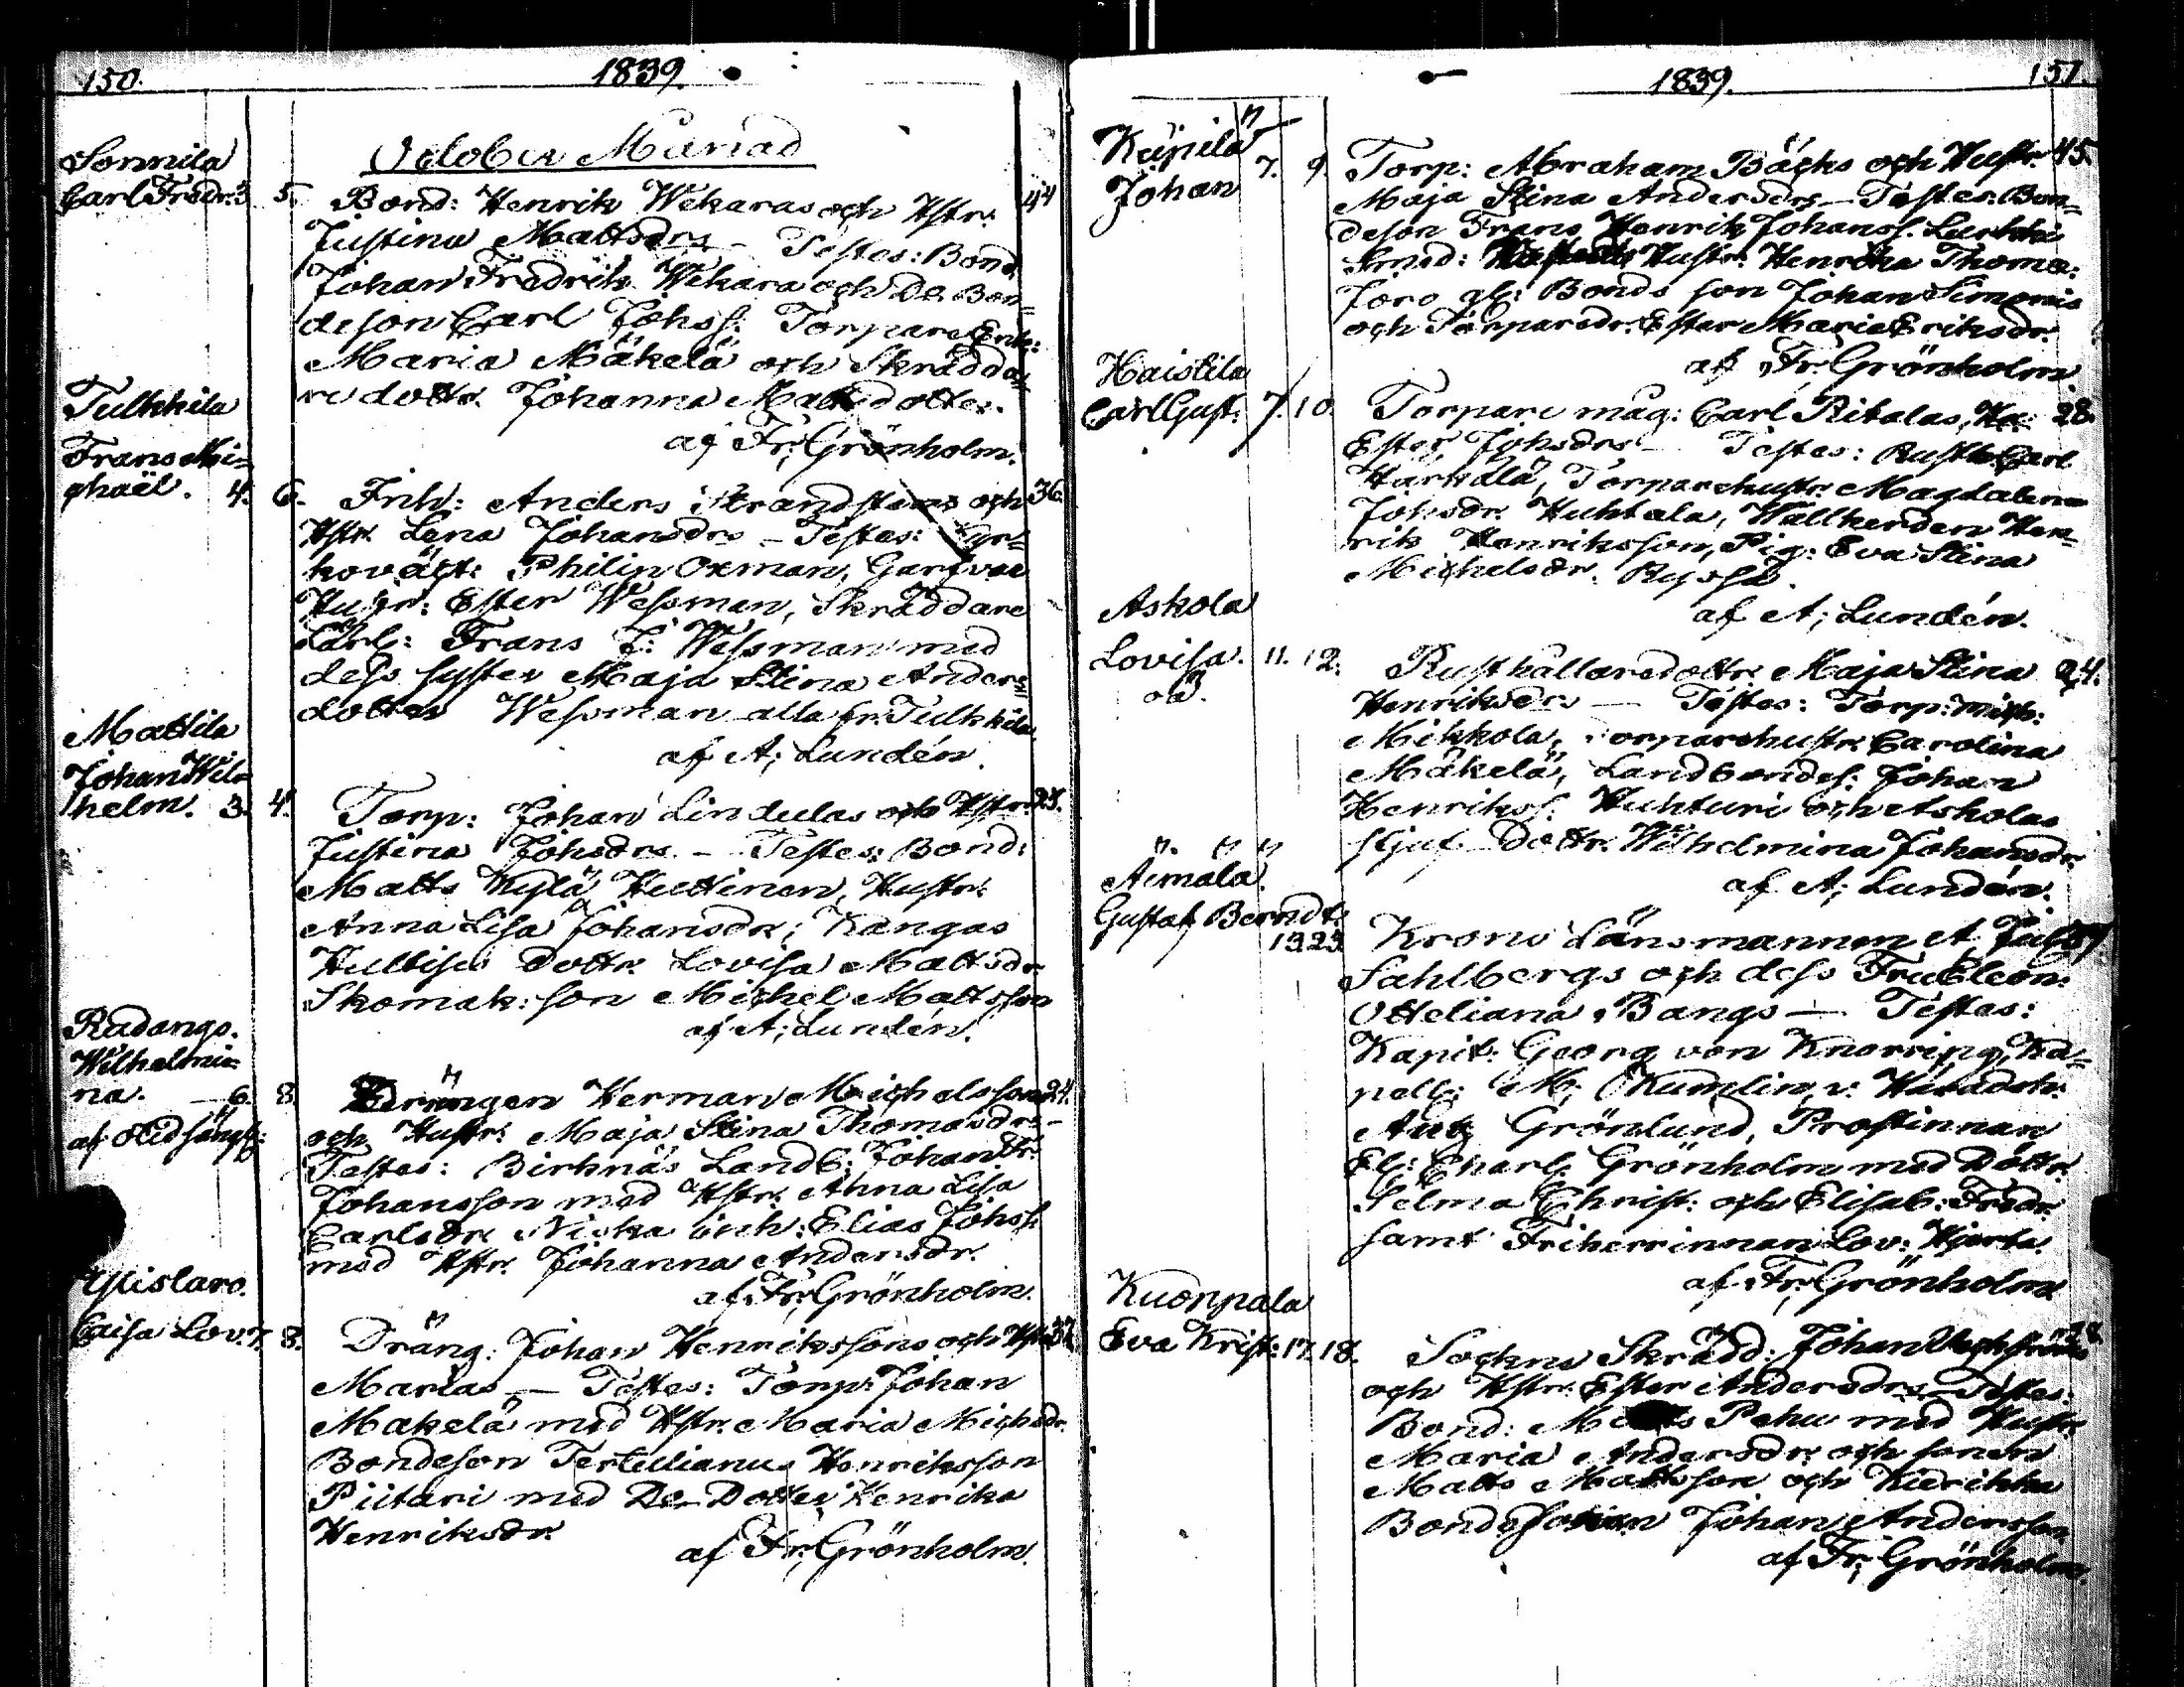 150.
1839.
October Månad
Sonnila
Carl Fredr. 3. 5. Bond: Henrik Wekaras och Hstr. 44
Justina Mattsdrs – Testes: Bond.
Johan Fredrik Wekara och Do Bon=
deson Carl Johss: Torpare Enk:
Maria Mäkelä och Skrädda=
re dottr. Johanna Mattsdotter.
af Fr; Grönholm.
Tulkkila
Frans Mi=
chaël. 4. 6. Inh: Anders Strandstens och 36.
Hstr. Lena Johansdrs – Testes: Kyr=
kovägt: Philip Oxman, Garfvar
Hustr: Ester Wessman, Skräddare
Lärl: Frans F: Wessman med
dess syster Maja Stina Anders=
dotter Wessman alla fr. Tulkkila
af A; Lundén.
Mattila
Johan Wil=
helm. 3. 4. Torp: Johan Lindulas och Hstr.
Justina Johsdrs. – Testes: Bond:
Matts Kylä Huttinen, Hustr.
Anna Lisa Johansdr; Kangas
dottr. Lovisa Mattsdr.
Skomak: son Michel Mattsson
af A; Lundén.
Radangs.
Wilhelmi=
na. – 6. 8. Drängen Herman Michelsson 24.
och Hustr. Maja Stina Thomasdrs –
Testes: Birknäs Landb: Johan Fr:
Johansson med Hstr. Anna Lisa
Carlsdr. Niska inh: Elias Johss.
med Hstr. Johanna Andersdr.
af Fr; Grönholm.
Caisa Lov. 7. 8. Dräng: Johan Henrikssons och Hstr. 37.
Marias – Testes: Torp: Johan
Makelä med Hstr. Maria Michsdr.
Bondeson Tertulianus Henriksson
Piitari med Do Dotter Henrika
Henriksdr.
af Fr; Grönholm.
1839.
151.
Küpilä
Johan 7. 9. Torp: Abraham Bäcks och Hustr. 45.
Maja Stina Andersdrs – Testes: Bon=
deson Frans Henrik Johanss. Lurkki
Hustr: Henrika Thomas:
Joro gl: Bonds son Johan Simonis
och Torparedr. Ester Maria Eriksdr.
af Fr; Grönholm.
Haistila
Carl Gust: 7. 10. Torpare måg: Carl Ritalas, Ha: 28.
Ester Johsdrs – Testes: Rusth: Carl
Härkälä, Torparehustr. Magdalena
Johsdr. Huhtala, Wallherden Hen=
rik Henriksson, Pig: Eva Stina
Michelsdr. Ryssä.
af A; Lundén.
Askola
Lovisa. 11. 12. Rusthållaredottr. Maja Stina 24.
oä. Henriksdrs – Testes: Torp: Mich:
Mikkola, Torparehustr. Carolina
Mäkelä, Landbondes: Johan
Henrikss: Huhturi och Askolas
stjuf Dottr. Wilhelmina Johansdr.
af A; Lundén.
Äimälä.
Gustaf Berndt.
Krono Länsmannen A
Sahlbergs och dess Fru Eleon:
Otteliana Bangs – Testes:
Kapit: Georg von Knorring, Ka=
pell: M; Kumlin, v: Häradsh:
Aug Grönlund, Prostinnan
El: Charl: Grönholm med Döttr.
Selma Christ: och Elisab: Fredr.
samt Friherrinnan Lov: Hjerta.
af Fr; Grönholm.
Kuonpala
Eva Krist: 17. 18. Sockne Skrädd: Johan 28.
och Hstr. Ester Andersdrs – Testes:
Bond: Matts Pehu med Hustr.
Maria Andersdr. och sonen
Matts Mattsson och Kurikka
Bondesonen Johan Andersson
af Fr; Grönholm.